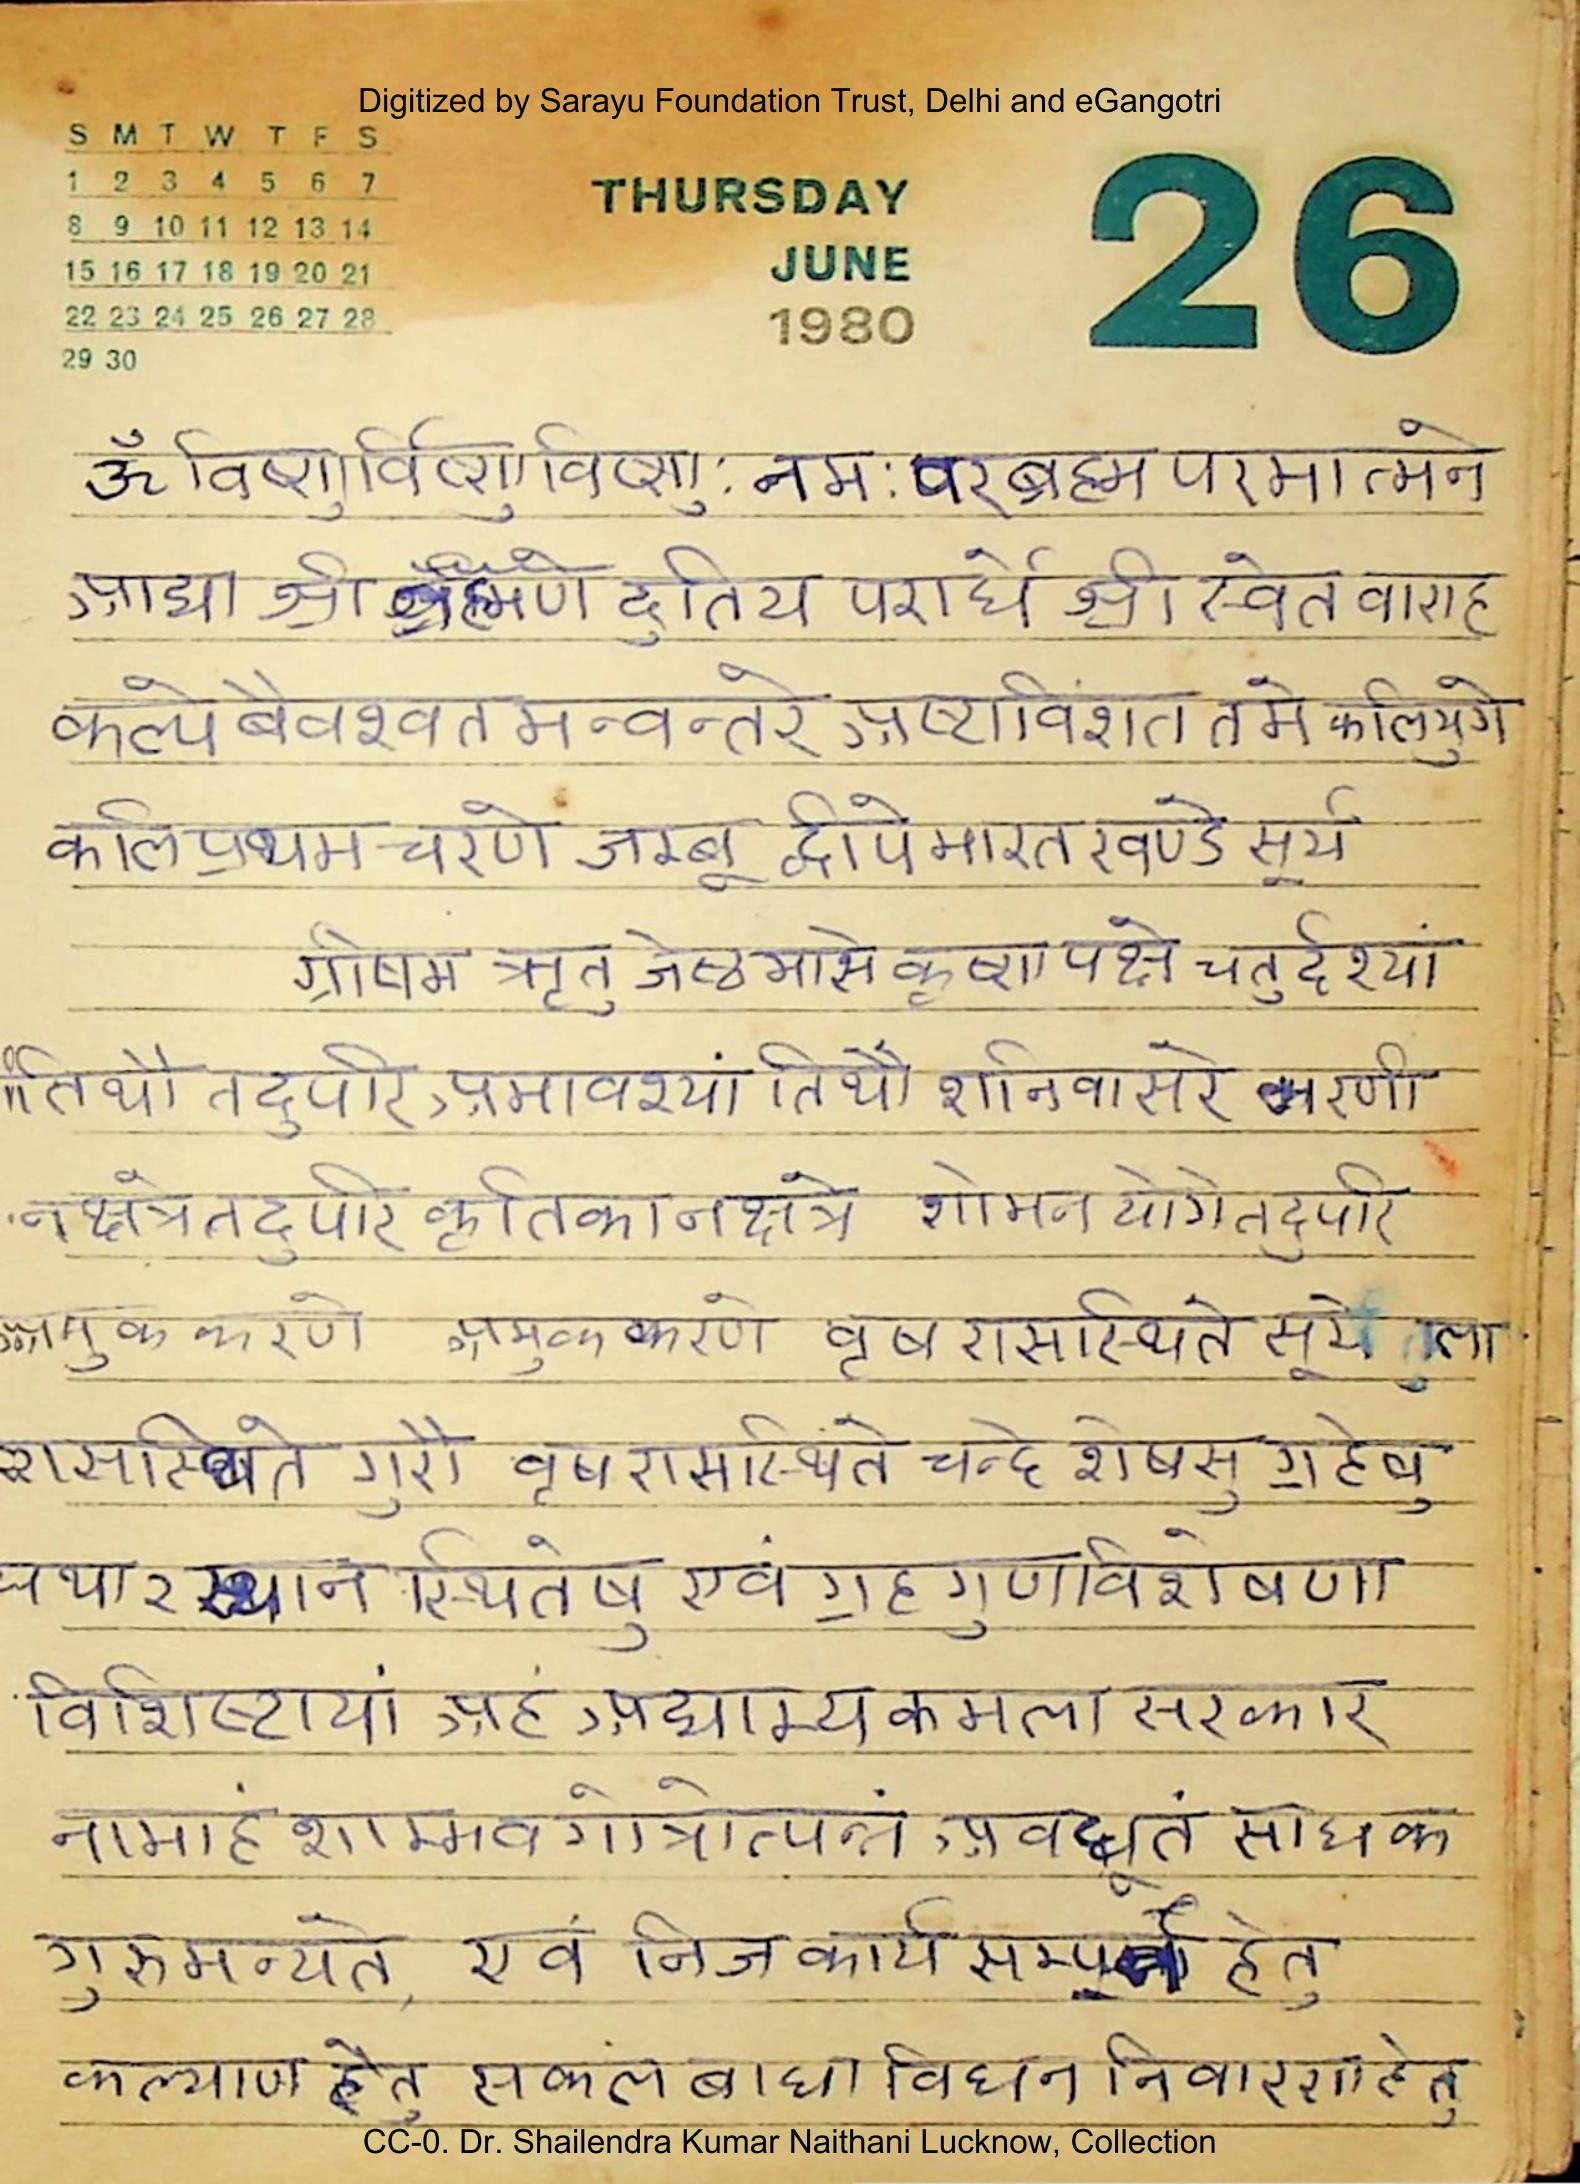 Digitized by Sarayu Foundation Trust, Delhi and eGangotri
S M T W T F S
1 2 3 4 5 6 7
8 9 10 11 12 13 14
15 16 17 18 19 20 21
22 23 24 25 26 27 28
29 30
THURSDAY
JUNE
1980
26
ॐ विष्णुर्विष्णुविष्णु: नम: परब्रह्म परमात्मने
अाद्या श्री ब्रह्मणे दुतिय परार्धे श्री स्वेत वाराह
कल्पे बैवश्वत मन्वन्तरे अष्टाविंशत तमे कलियुगे
कलि प्रथम चरणे जम्बू द्वीपे भारत खण्डे सूर्य
ग्रीषम ऋृतु जेष्ठ मासे कृष्ण पक्षे चतुर्दश्यां
तिथौ तदुपरि अमावश्यां तिथौ शनिवासरे भरणी
नक्षत्रे तदुपरि कृतिका नक्षत्रे शोभन योगे तदुपरि
अमुक करणे अमुक करणे वृष रासस्थिते सूर्ये तुला
रासस्थिते गुरौ वृष रासस्थिते चन्द्रे शेषसु ग्रहेषु
यथा २ स्थान स्थितेषु एवं ग्रह गुण विशेषणा
विशिष्टायां अहं अद्याम्य कमला सरकार
नामाहं शाम्भव गोत्रोत्पन्नं अवद्धूतं साधक
गुरुमन्यते, एवं निज कार्य सम्पूर्ण हेतु
कल्याण हेतु सकल बाधा विघन निवारण हेतु
CC-0. Dr. Shailendra Kumar Naithani Lucknow, Collection